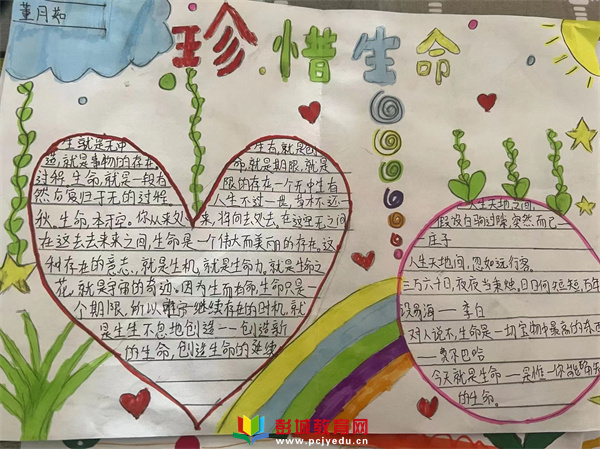 董月茹
珍惜生命
生就是无中
生有,就是创
造,就是事物的存在
命,就是期限,就是
过程.生命,就是一段有
限的存在,一个无中生有
然后复归于无的过程.
人生不过一世,草木不过一
秋.生命,本平空.你从来处
来,将向去处去,在这里无之间
在这去去来来之间,生命是一个伟大而美丽的存在.这
种存在的意志,就是生机,就是生命力,就是生命之
花,就是宇宙的奇迹.因为生而有命,生命只是一
个期限,所以唯一继续存在的时机,就
是生生不息地创造一创造新
的生命,创造生命的延续
人生天地之间
假设白驹过隙,突然而已—
—庄子
人生天地间,忽如远行客.
三万六千日,夜夜当秉烛,白日何短短,百年
—李白
对人说不,生命是一切宝物中最高的东西
—费尔巴哈
今天就是生命—是惟一你能
的生命.
彭城教育网
www.pcjyedu.cn